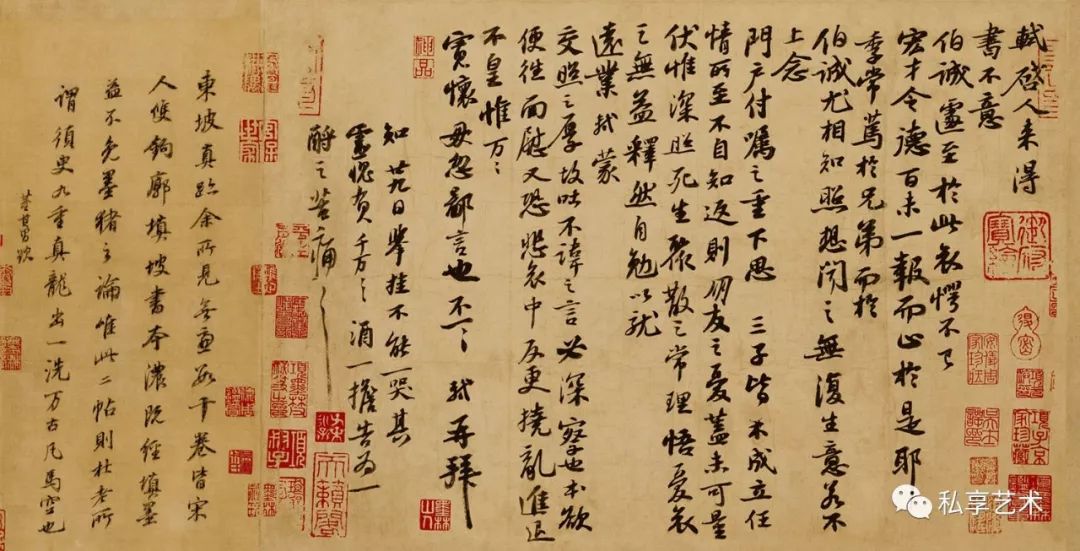 軾啓人来得
書不意
伯誠遽至於此哀愕不已
宏才令德百未一報而止於是耶
季常篤於兄弟而於
伯誠尤相知照想聞之無復生意若不
上念
門户付囑之重下思三子皆未成立任
情所至不自知返則朋友之憂蓋未可量
伏惟深照死生聚散之常理悟憂哀
之無益釋然自勉以就
遠業軾蒙
交照之厚故吐不諱之言必深察也本欲
便往面慰又恐悲哀中反更撓亂進退
不皇惟万〻
寛懷毋忽鄙言也不一〻軾再拜
知廿九日舉挂不能一哭其
靈愧負千万〻酒一擔告為一
酹之苦痛〻
神品
東坡真跡余所見無慮數十卷皆宋
人雙鉤廓填坡書本濃既經填墨
益不免墨豬之論惟此二帖則杜老所
謂須臾九重真龍出一洗万古凡馬空也
董其昌題
天籟閣
項子京家珍藏
私享艺术